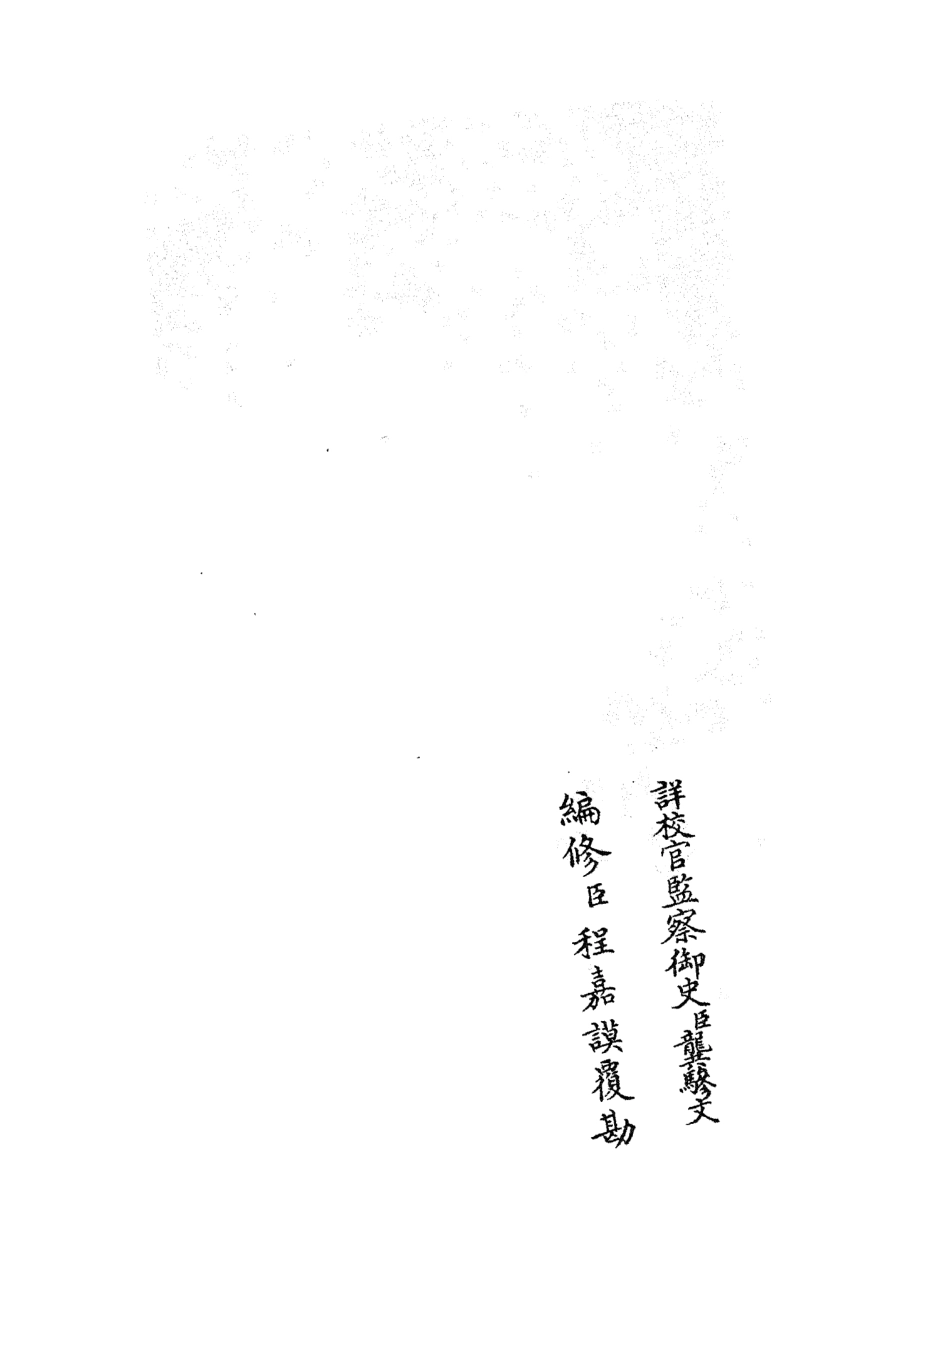 詳校官監察御史臣龔驂文
編修臣程嘉謨覆勘